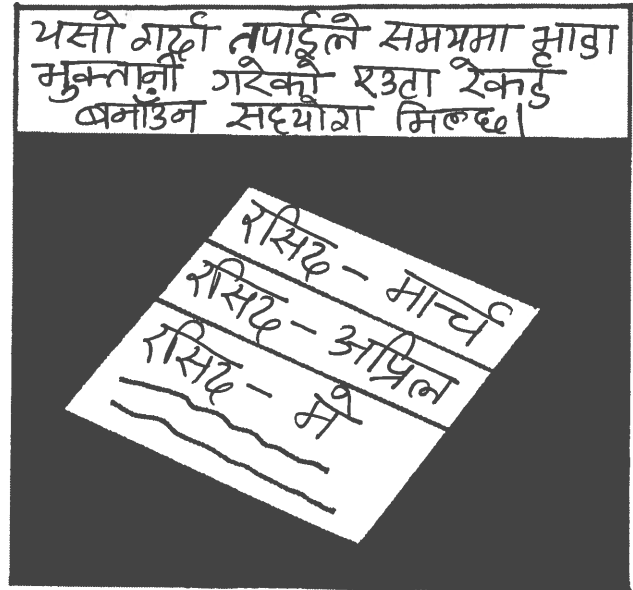 यसो गर्दा तपाईले समयमा भाडा
भुक्तानी गरेको एउटा रेकर्ड
बनाँउन सहयोग मिल्छ।
रसिद - मार्च
रसिद - अप्रिल
रसिद - मे